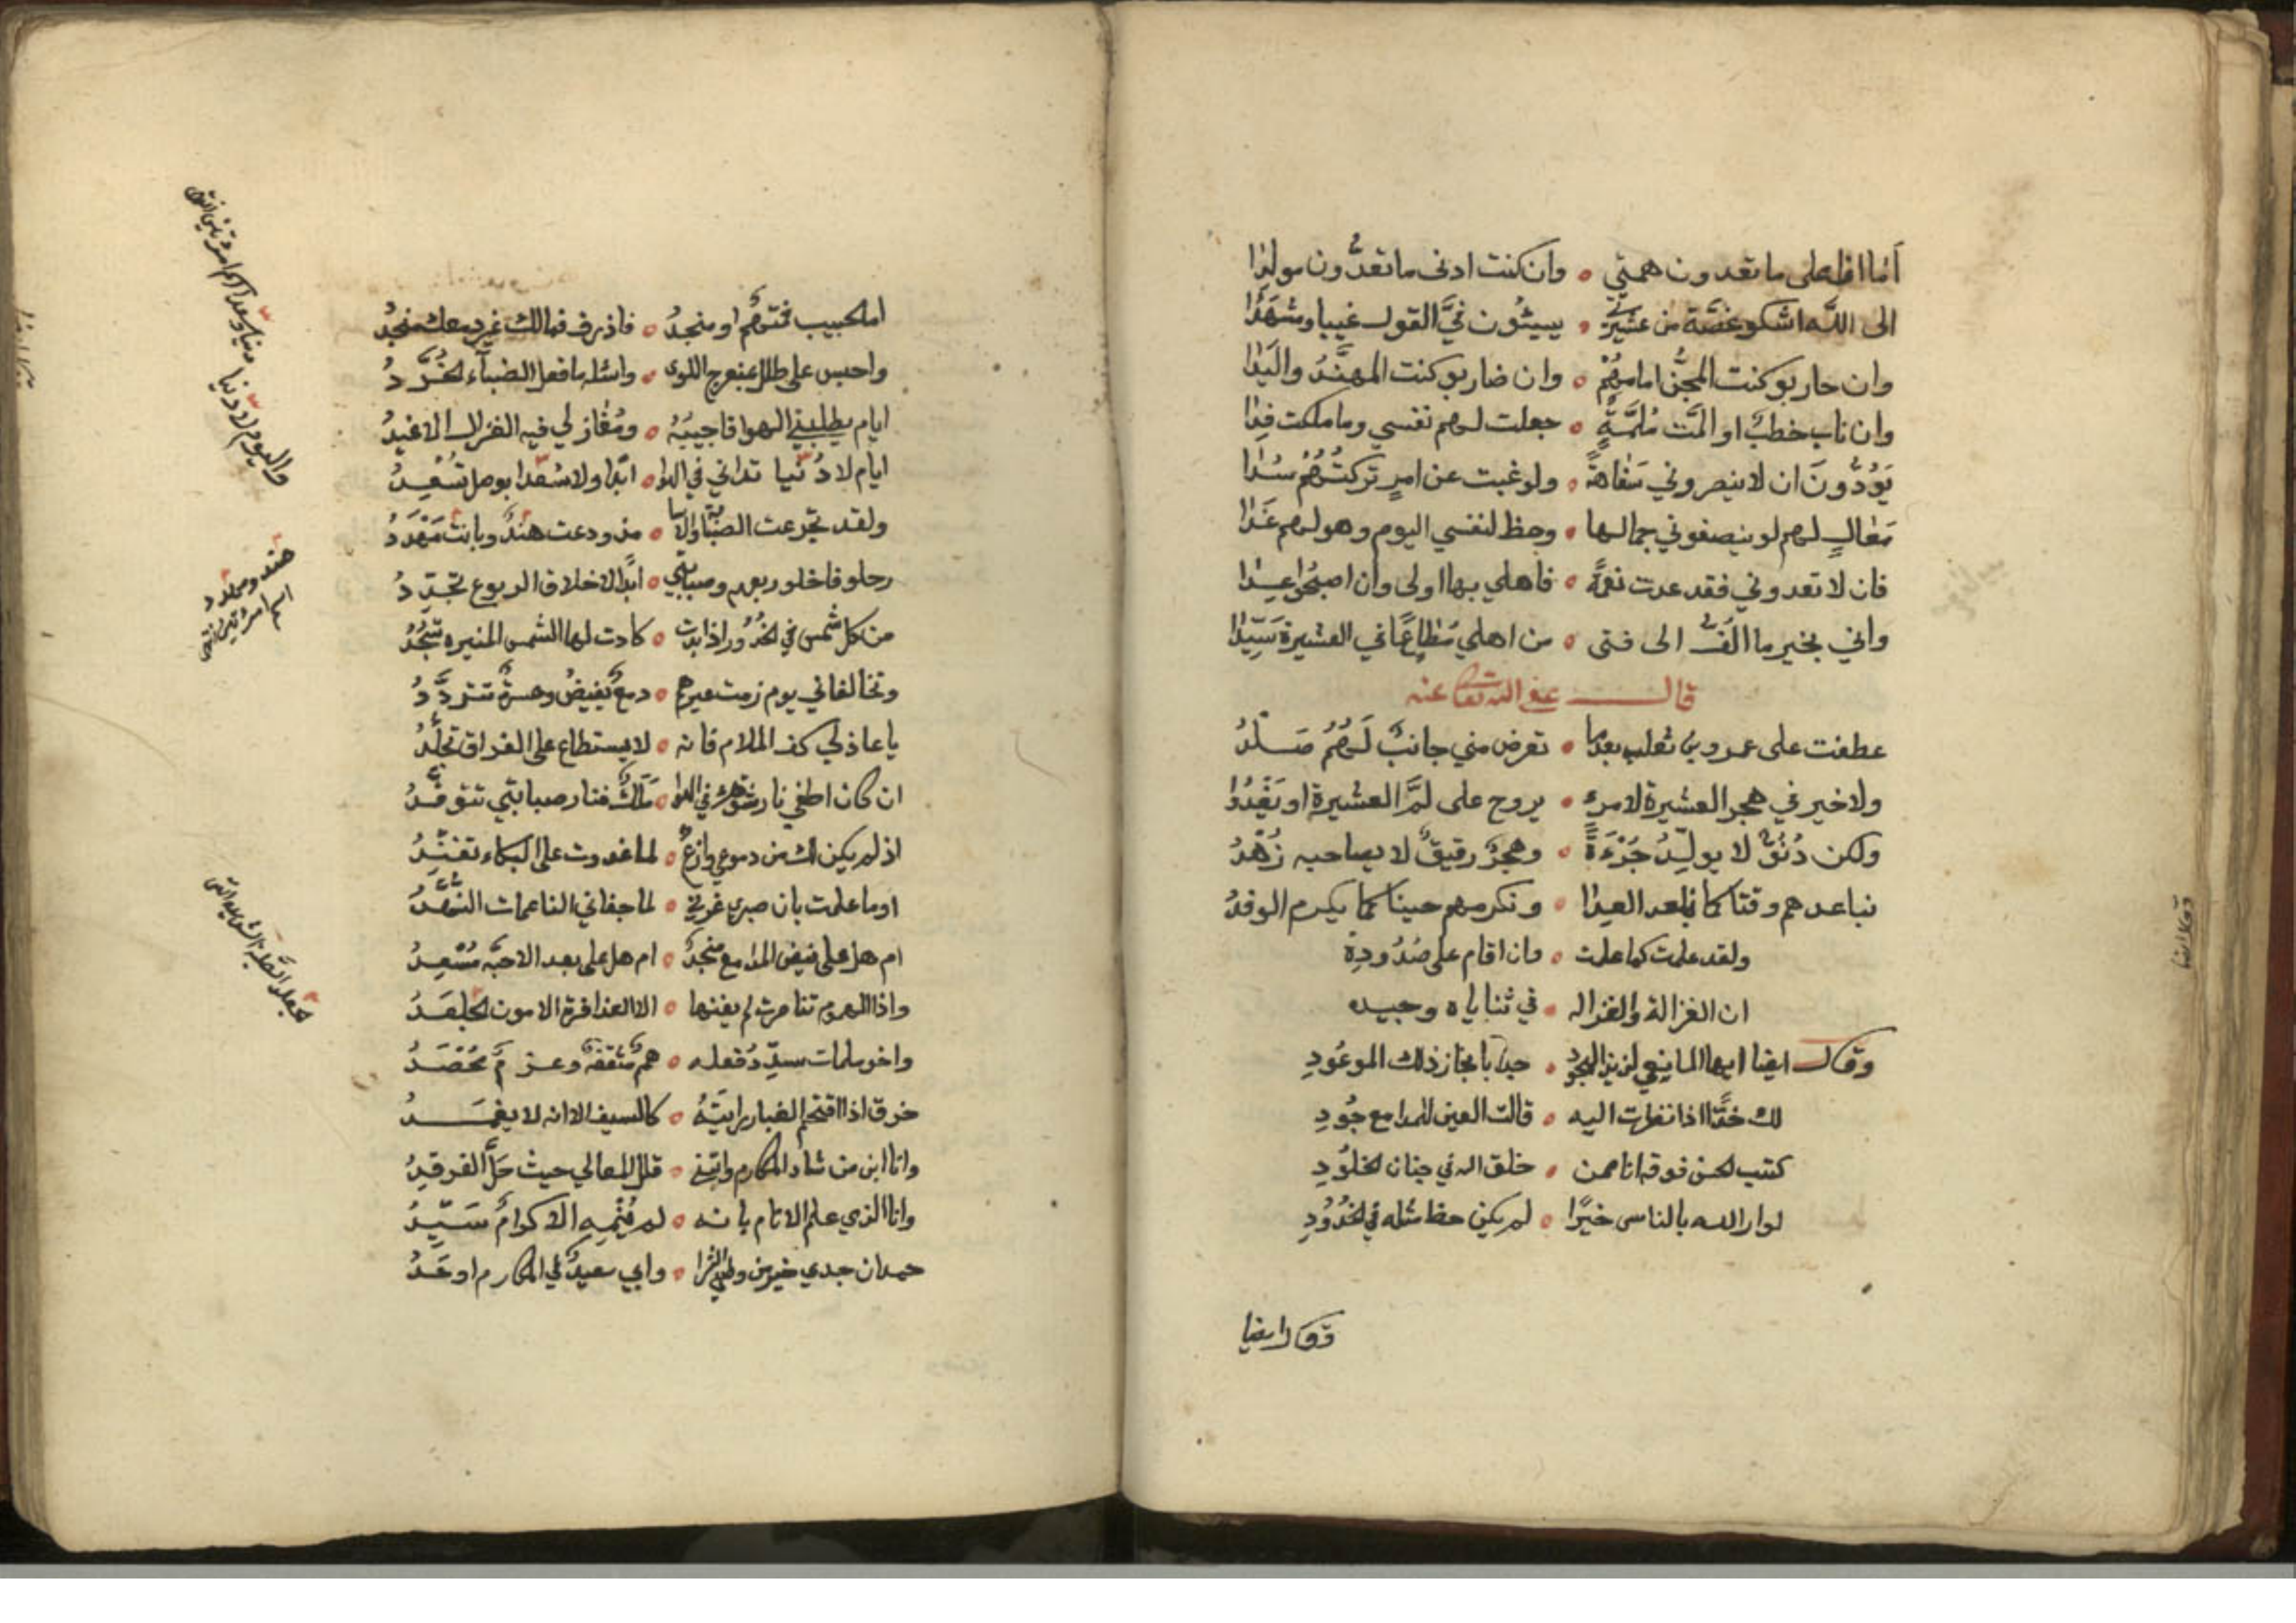 انا اعلى ما تعدون همتي ۰ وان كنت ادنى ما تعدّون مولدا
الى اللّه اشكو غصّة من عشيرتي ۰ يسيئون فيَّ القول غيبا ومشهَدا
وان حاربو كنت المجنَّ امامهُمْ ۰ وان ضاربو كنت المهنَّدُ واليَدا
وان ناب خطبٌ او المَّت مُلمَّةٍ ۰ جعلت لهم نفسي وما ملكت فِدا
يَوُدُّونَ ان لا ينصروني سَفاهةً ۰ ولو غبت عن امرٍ تركتُهُمْ سُدا
مَعَالٍ لهم لو ينصفوني جمالها ۰ وحظ لنفسي اليوم وهو لهم غَدا
فان لا تعدوني فقد عدت نعمَّة ۰ فاهلي بها اولى وان اصبحُوا عِدا
واني بخير ما الى فتى ۰ من اهلي مُطاعًا في العشيرة سَيِّدا
قال عفى اللّه تعالى عنه
عطفت على عمرو بن تغلب بعدما ۰ تعرض مني جانبٌ لَهُمُ صَلْدُ
ولا خير في هجر العشيرة لامرء ۰ يروح على لمَّ العشيرة او يَغْدُوا
ولكن دُنُوٌّ لا يولّدُ جُرْءَةً ۰ وهجرٌ رقيقٌ لا يصاحبه زُهْدُ
نباعدهم وقتا كما العِدا ۰ ونكرمهم حينا كما يكرم الوفدُ
ولقد علمت كما علمت ۰ وان اقام على صُدُودِهْ
ان الغزالة والغزاله ۰ في ثناياه وجيده
وقال ايضا ايها المانعي لذيذ الهجود ۰ جد بانجاز ذلك الموعُودِ
لك خدًّا اذا نظرت اليه ۰ قالت العين للمدامع جُودِ
كتب الحسن فوقه انا ممن ۰ خلق اللّه في جنان الخلُودِ
لو اراد اللّه بالناس خيرًا ۰ لم يكن حظ مثله في الخُدُودِ
وقال ايضا
اما الحبيب فمتهمٌ او منجدُ ۰ فاذرف فمالك غير دمعك منجدُ
واحبس على طلل بمنعرج اللوى ۰ واسئله ما فعل الضبآء الخُرَّدُ
ايام يطلبني الهوا فاجيبَهُ ۰ ومُغازلي فيه الغزال الاغيدُ
ايام لا دُنيا تداني في الهوا ۰ ابدًا ولا سُعدا بوصل تُسْعِدُ
ولقد تجرعت الصبَّابة والاسا ۰ مذ ودعت هندٌ وبانت مَهْدَدُ
رحلو فاخلو ربعهم وصبابتي ۰ ابدًا لاخلاق الربوع تجدِّدُ
من كل شمس في الخُدُور اذا بدت ۰ كادت لها الشمس المنيره تسْجُدُ
وتخالفاني يوم زمت عيرهم ۰ دمعٌ يفيضُ وحسرةٌ تتردَّدُ
يا عاذلي كف الملام فانه ۰ لا يستطاع على الفراق تجلُّدُ
ان كان اطفي نار في الهوا ۰ فنار صبابتي تتوقَّدُ
اذ لم يكن لك من دموعي وازعٌ ۰ لما غدوت على البكاء تفنِّدُ
او ما علمت بان صبري غرني ۰ لما جفاني الناعمات النُّهَّدُ
ام هل على فيض المدامع منجدٌ ۰ ام هل على بعد الاحبَّه مُسْعِدُ
واذا الهموم تناصرت لم يفنها ۰ الا العذافرة الامون الجلعَدُ
واخو ملمات سيدّدُ فعله ۰ هممٌ مثقفةٌ وعزمٌ مُحْصَدُ
خرق اذا اقتحم الغبار رايتَهُ ۰ كالسيف الا انه لا يغمَدُ
وانا ابن من شاد المكارم وابتنى ۰ قلل المعالي حيث حَلَّ الفرقدُ
وانا الذي علم الانام بانه ۰ لم يُنْمِهِ الا كرامٌ سَيّدُ
حمدان جدي خير من وطئ الثرا ۰ وابي سعيدٌ في المكارم اوحَدُ
هند ومهدد
اسما امرئتين انتهى